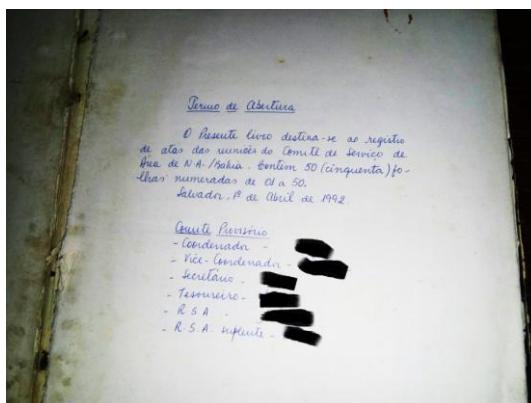 Termo de Abertura
O Presente livro destina-se ao registro
de atas das reuniões do Comitê de Serviço de
Área de N.A./Bahia. Contém 50 (cinquenta) fo-
lhas numeradas de 01 a 50.
Salvador, 1º de Abril de 1992
Comitê Provisório
- Coordenador -
- Vice-Coordenador -
- Secretário -
- Tesoureiro -
- R.S.A. -
- R.S.A. suplente -